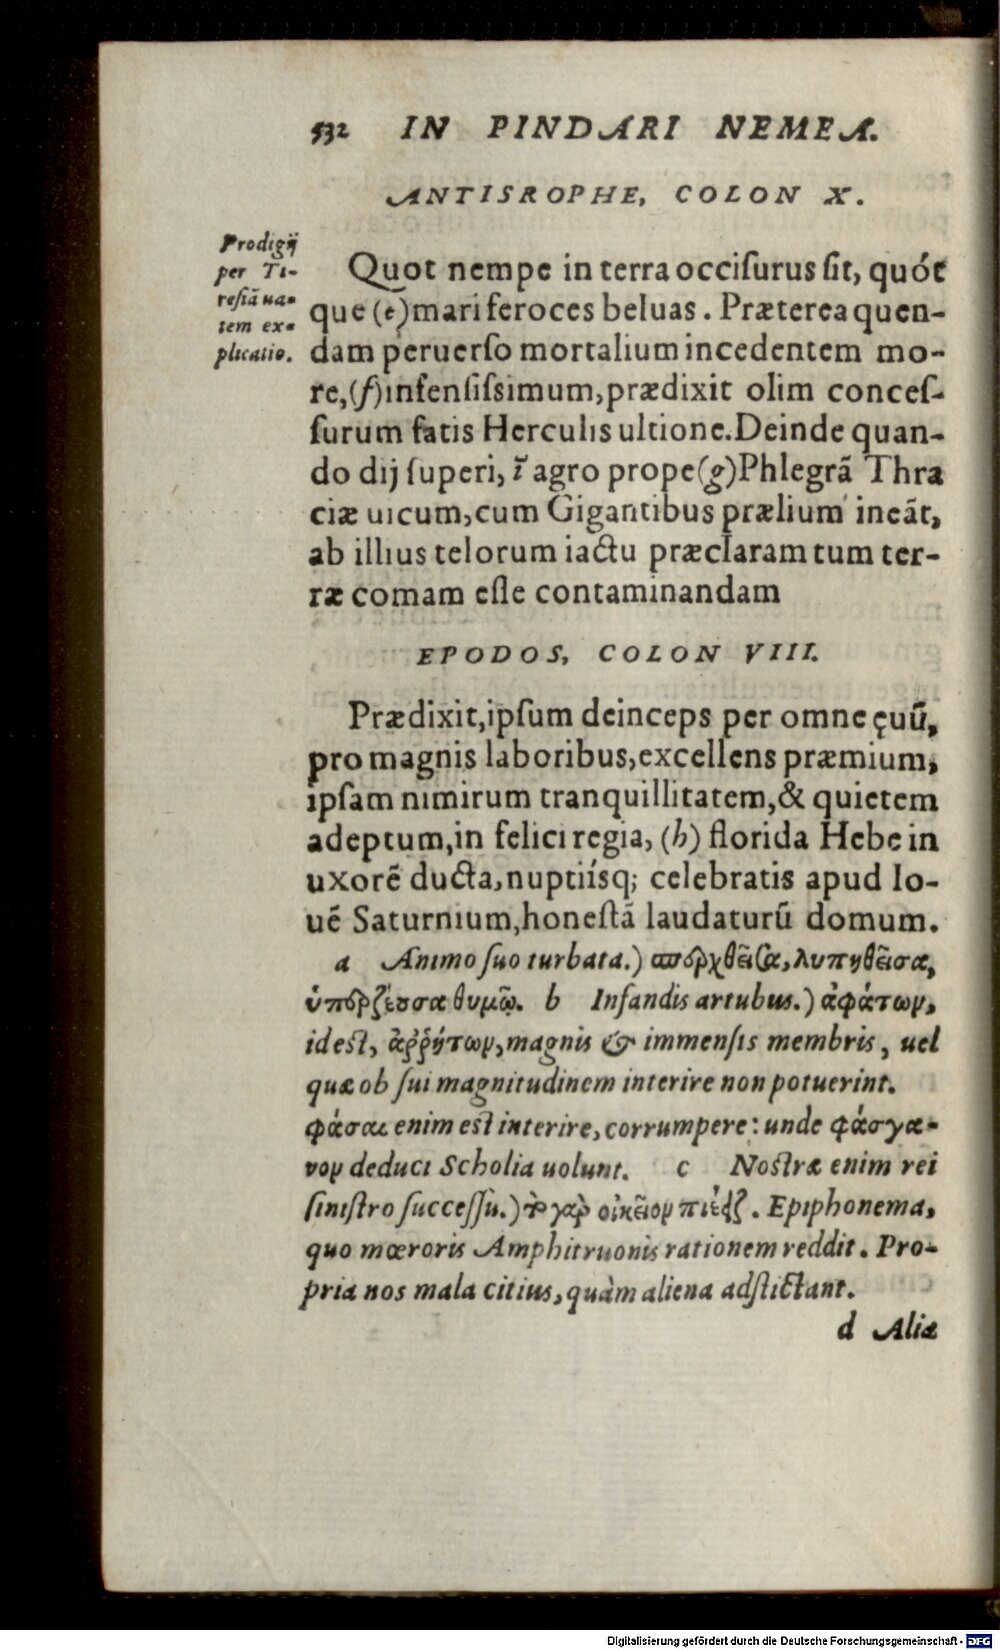 532 IN PINDARI NEMEA.
ANTISROPHE, COLON X.
Prodigij
per Ti-
resiā ua-
tem ex-
plicatio.
Quot nempe in terra occiſurus ſit, quót
que (e) mari feroces beluas. Præterea quen-
dam peruerſo mortalium incedentem mo-
re, (f) infenſiſsimum, prædixit olim conceſ-
ſurum fatis Herculis ultione. Deinde quan-
do dij ſuperi, ī agro prope (g) Phlegrā Thra
ciæ uicum, cum Gigantibus prælium ineāt,
ab illius telorum iactu præclaram tum ter-
ræ comam eſſe contaminandam
EPODOS, COLON VIII.
Prædixit, ipſum deinceps per omne ęuū,
pro magnis laboribus, excellens præmium,
ipſam nimirum tranquillitatem, & quietem
adeptum, in felici regia, (h) florida Hebe in
uxorē ducta, nuptiíſq; celebratis apud Io-
uē Saturnium, honeſtā laudaturū domum.
a Animo ſuo turbata.) λυπηθεῖσα,
θυμῷ. b Infandis artubus.) ἀφάτων,
id est, ἀῤῥήτων, magnis & immenſis membris, uel
quæ ob ſui magnitudinem interire non potuerint.
φάσαι enim est interire, corrumpere: unde φάσγα-
νον deduci Scholia uolunt. c Nostræ enim rei
ſiniſtro ſucceſſu.) τὸ γὰρ οἰκεῖον πιέζει. Epiphonema,
quo mœroris Amphitruonis rationem reddit. Pro-
pria nos mala citius, quàm aliena adſtictant.
d Aliæ
Digitalisierung gefördert durch die Deutsche Forschungsgemeinschaft - DFG